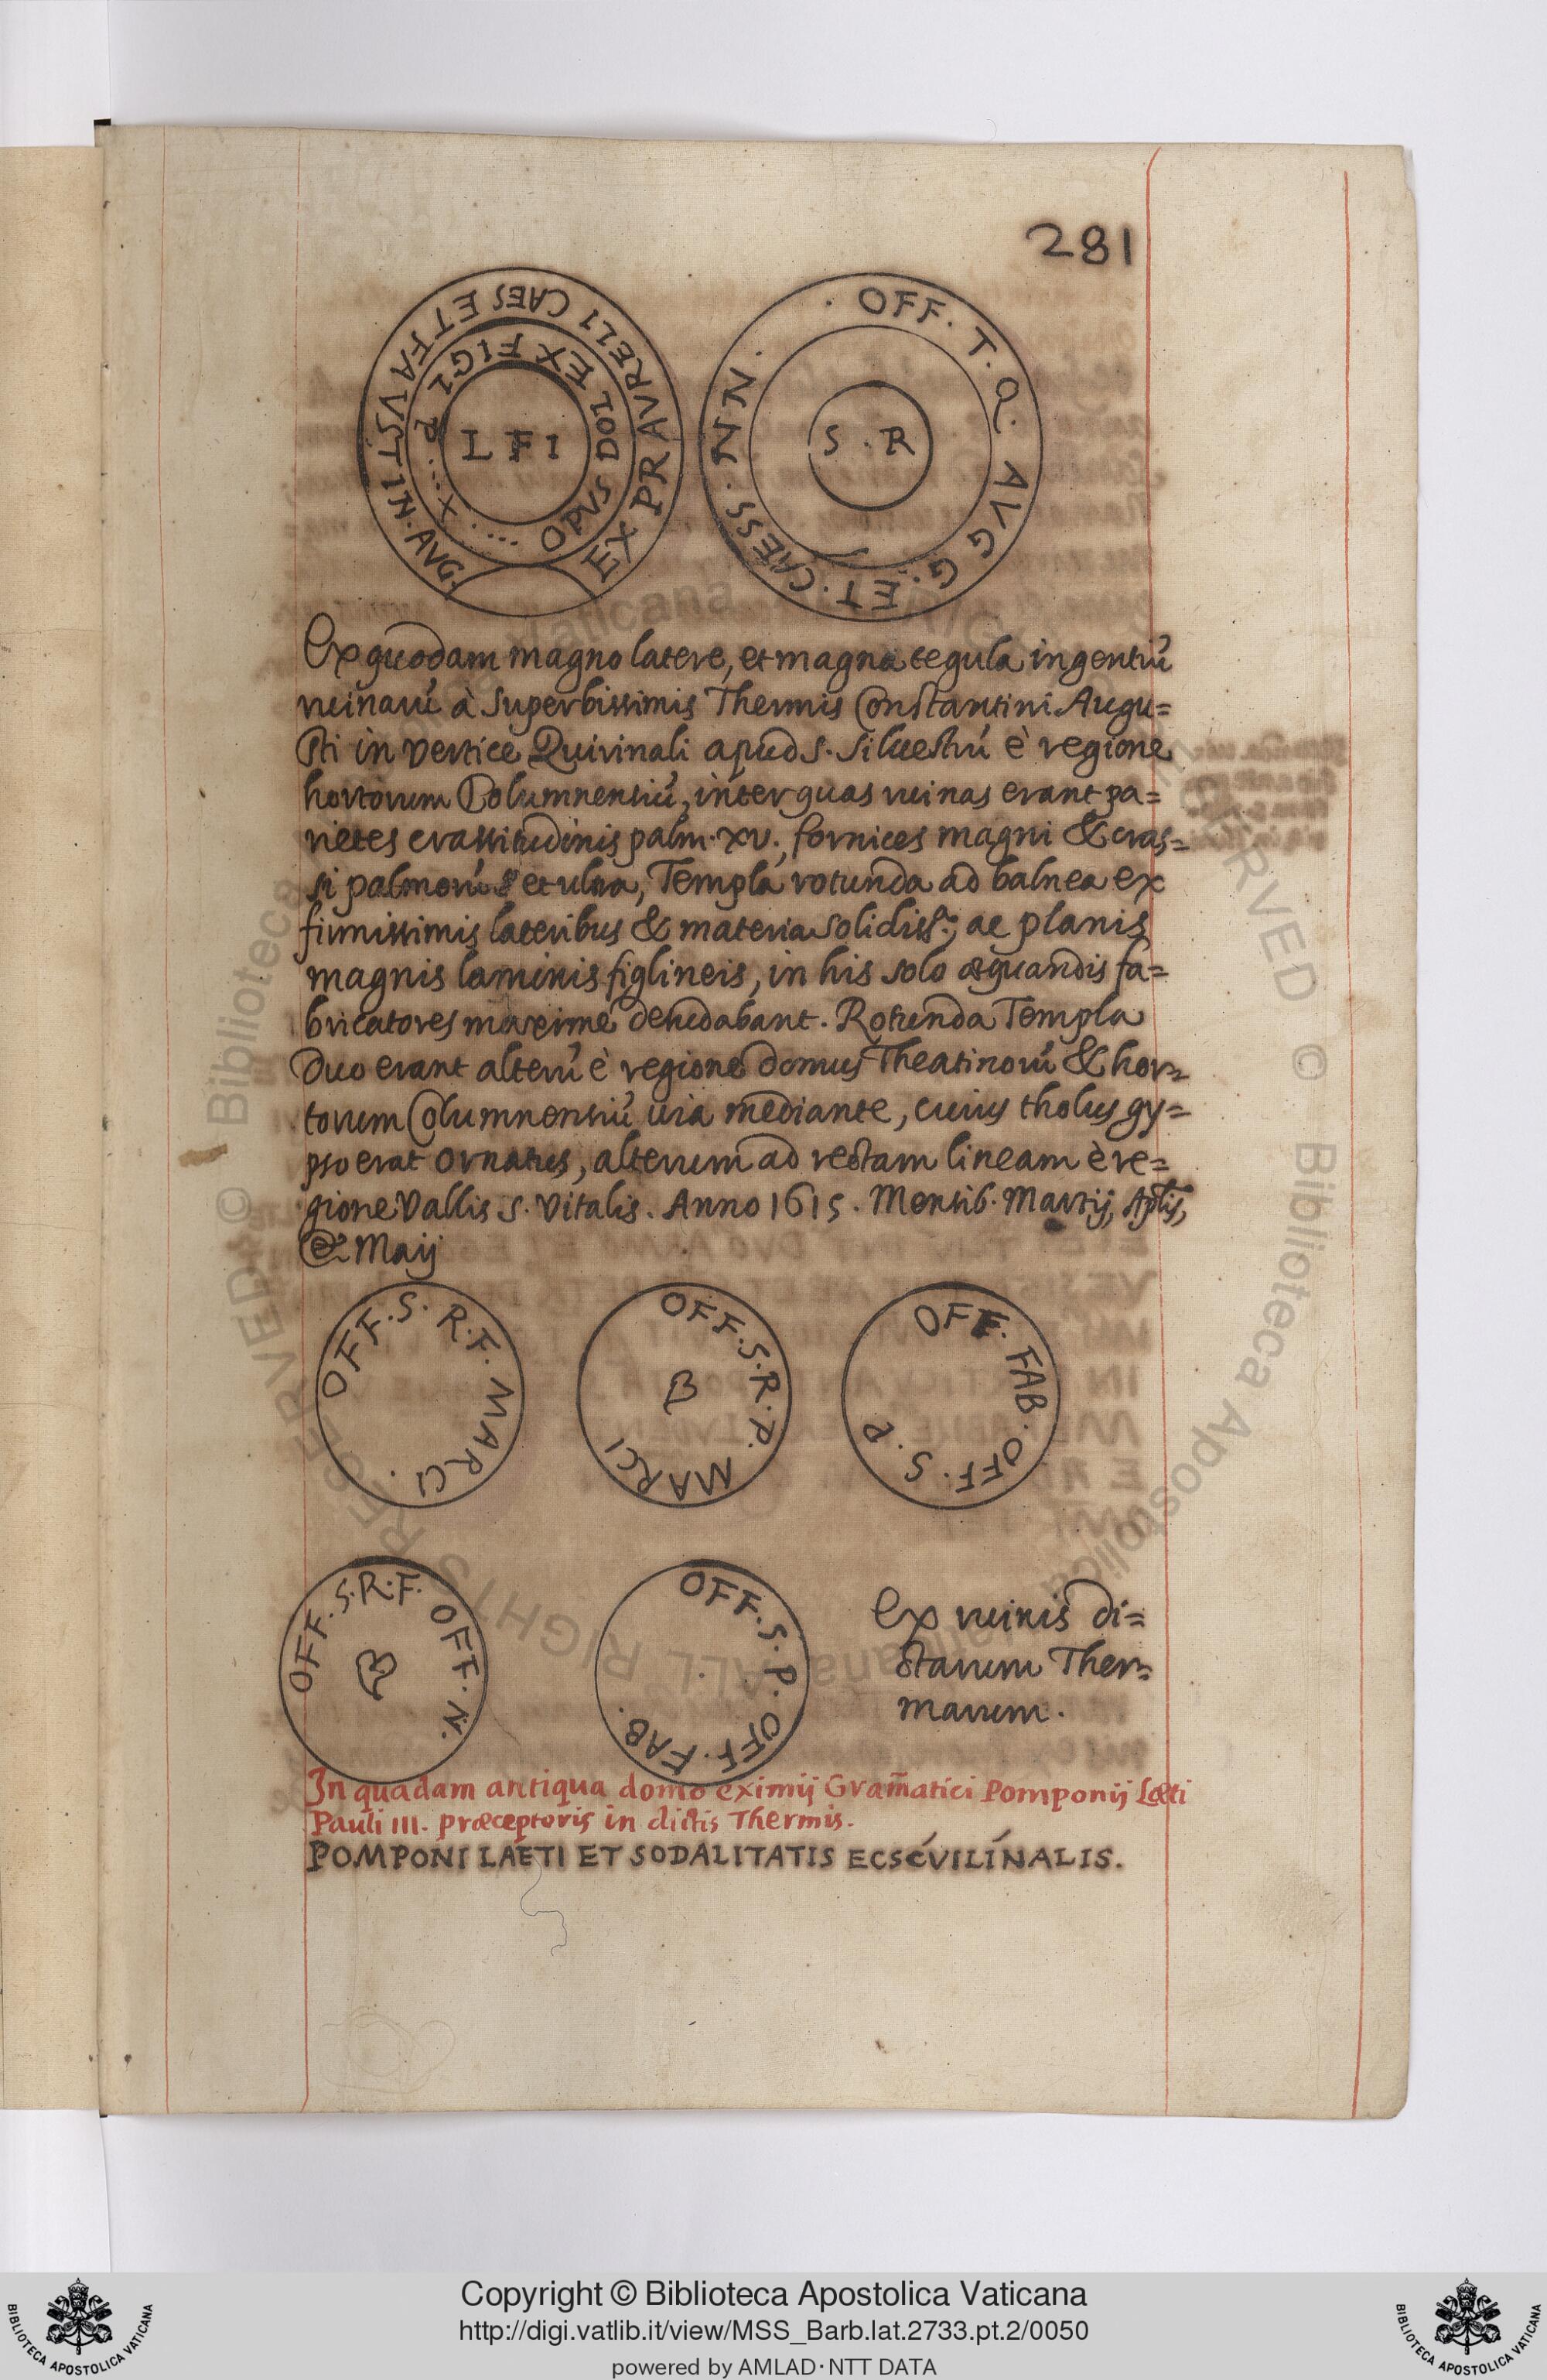 281
EX PR AVRELI CAES ET FAVSTIN. AVG.
OPVS DOL EX FIGL
L F I
· OFF. T. Q. AVG G. ET. CAESS. N N.
S · R
Ex quodam magno latere, et magna tegula ingentiũ
ruinarũ à superbissimis Thermis Constantini Augu=
sti in vertice Quirinali apud S. Siluestrũ è regione
hortorum Columnensiũ, inter quas ruinas erant pa=
rietes crassitudinis palm. xv., fornices magni & cras=
si palmorũ 8 et ultra, Templa rotunda ad balnea ex
firmissimis lateribus & materia solidiss.ª, ac planis
magnis laminis figlineis, in his solo æquandis fa=
bricatores maximè desudabant. Rotunda Templa
duo erant alterũ è regione domus Theatinorũ & hor=
torum Columnensiũ uia mediante, cuius tholus gy=
pso erat ornatus, alterum ad rectam lineam è re=
gione Vallis S. Vitalis. Anno 1615. Mensib. Martij, Aplis,
& Maij
OFF. S. R. F. MARCI.
OFF. S. R. P. MARCI
B
OFF. FAB. OFF. S. P
OFF. S. R. F. OFF. N.
OFF. S. P. OFF. FAB.
Ex ruinis di=
ctarum Ther=
marum.
In quadam antiqua domo eximij Gram̃atici Pomponij Læti
Pauli III. præceptoris in dictis Thermis.
POMPONI LAÉTI ET SODALITATIS ECSCÚILÍNALIS.
Copyright © Biblioteca Apostolica Vaticana
http://digi.vatlib.it/view/MSS_Barb.lat.2733.pt.2/0050
powered by AMLAD·NTT DATA
BIBLIOTECA APOSTOLICA VATICANA
BIBLIOTECA APOSTOLICA VATICANA